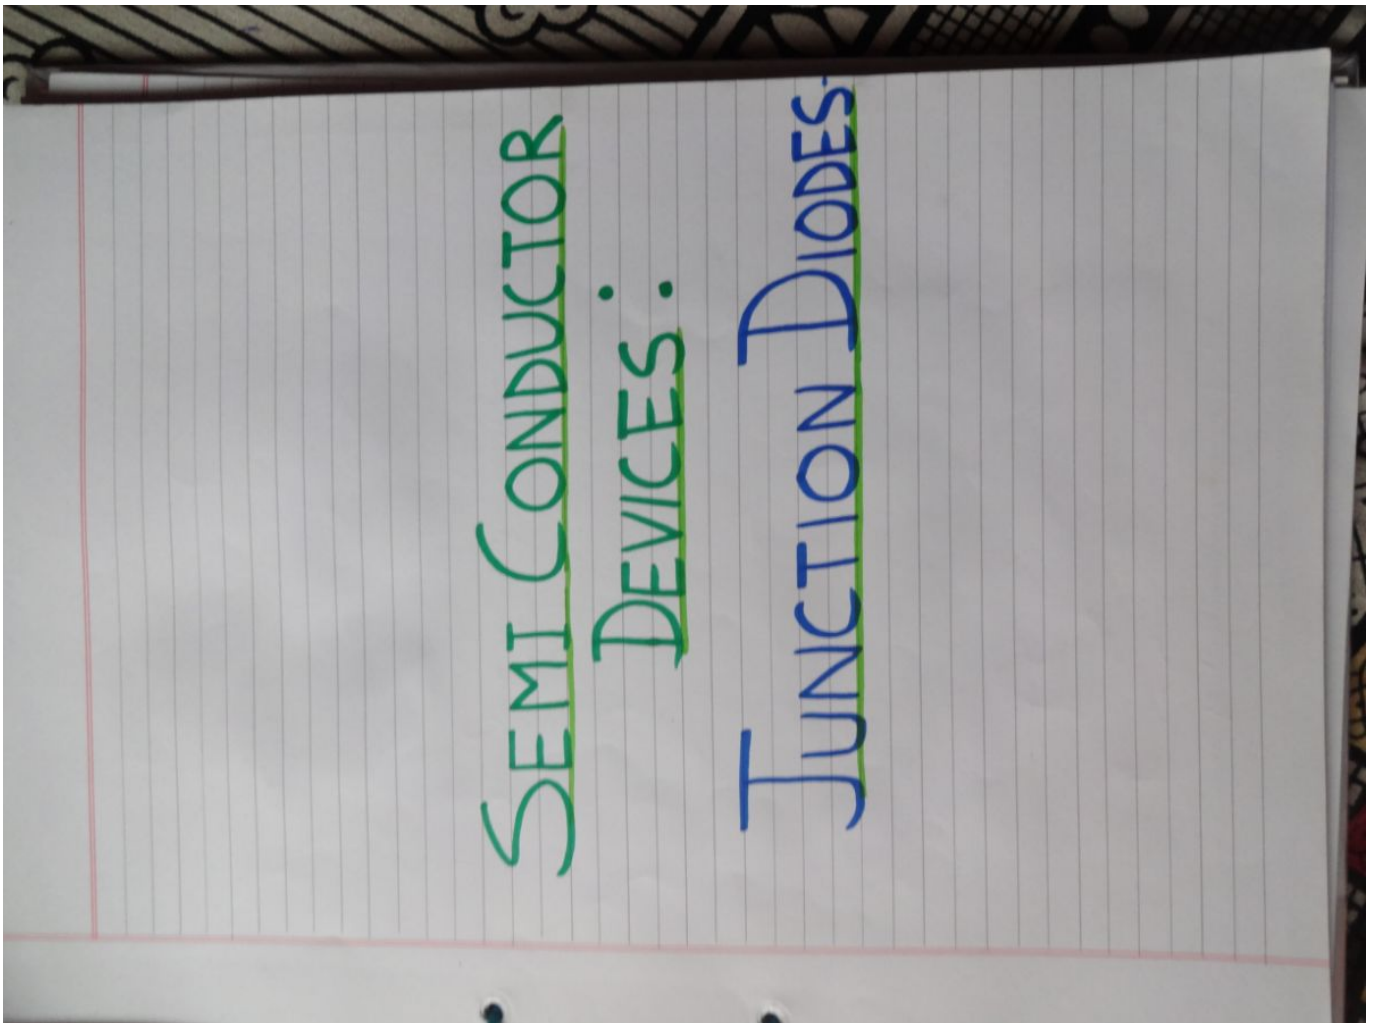 SEMI CONDUCTOR
DEVICES:
JUNCTION DIODES